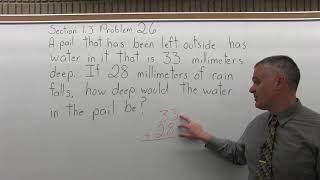 Section 1.3 Problem 26
A pail that has been left outside has
water in it that is 33 millimeters
deep. If 28 millimeters of rain
falls, how deep would the water
in the pail be?
33
+ 28